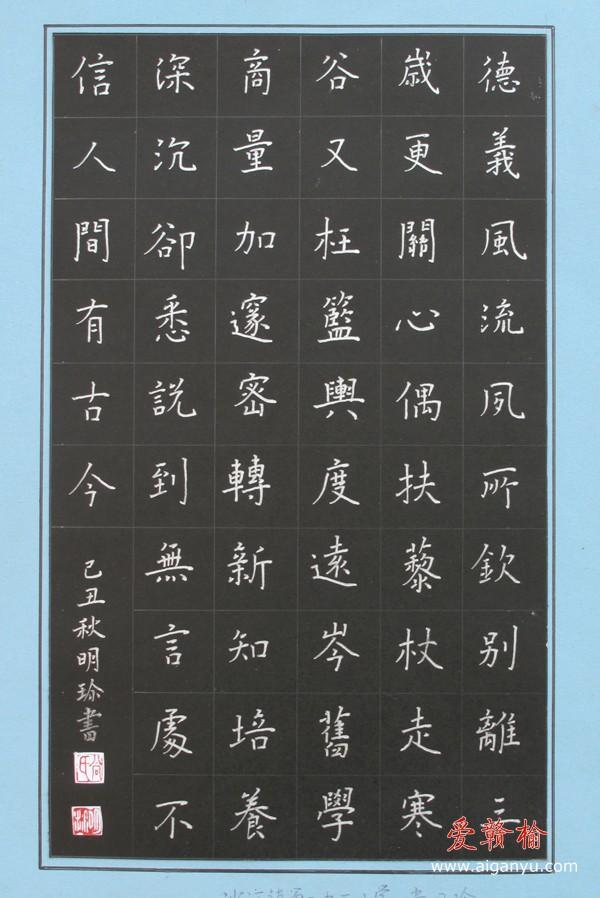 德義風流夙所欽别離三
歳更關心偶扶藜杖走寒
谷又枉籃輿度遠岑舊學
商量加邃密轉新知培養
深沉卻悉說到無言處不
信人間有古今
己丑秋明珍書
爱赣榆
www.aiganyu.com